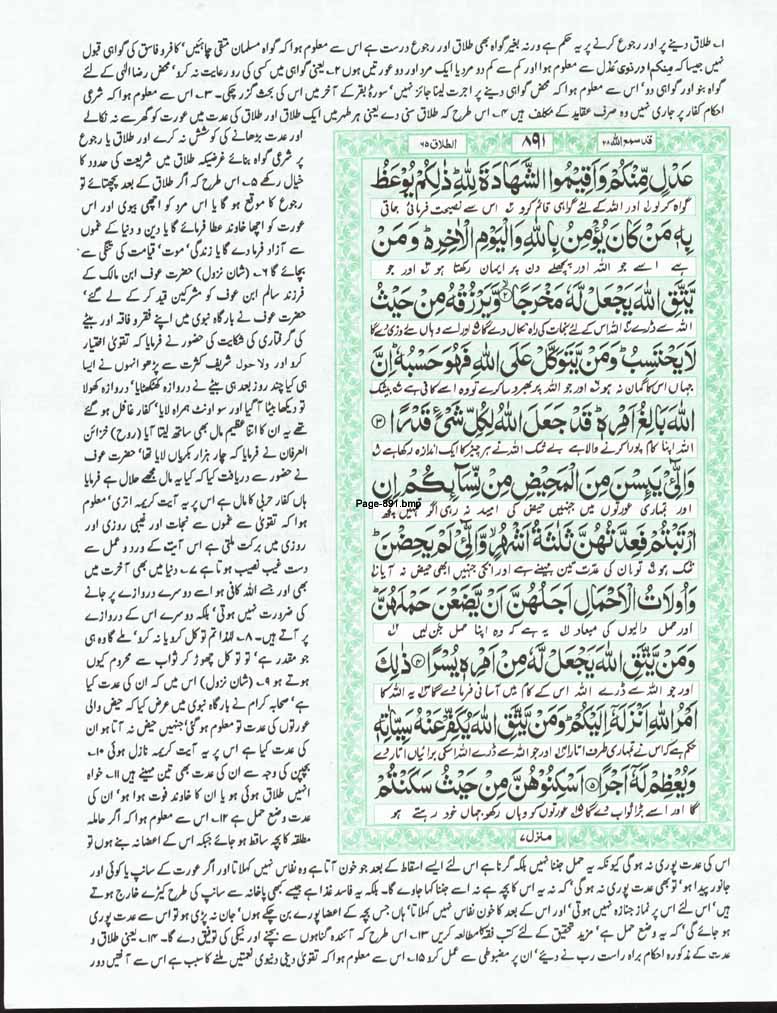 ۱؎ طلاق دینے پر اور رجوع کرنے پر یہ حکم ہے ورنہ بغیر گواہ بھی طلاق اور رجوع درست ہے اس سے معلوم ہوا کہ گواہ مسلمان متقی چاہئیں' کافر و فاسق کی گواہی قبول
نہیں جیسا کہ منکم اور ذوی عدل سے معلوم ہوا اور کم سے کم دو مرد یا ایک مرد اور دو عورتیں ہوں ۲؎ یعنی گواہی میں کسی کی رو رعایت نہ کرو' محض رضا الٰہی کے لئے
گواہ بنو اور گواہی دو' اس سے معلوم ہوا کہ محض گواہی دینے پر اجرت لینا جائز نہیں' سورۂ بقر کے آخر میں اس کی بحث گزر چکی۔ ۳؎ اس سے معلوم ہوا کہ شرعی
احکام کفار پر جاری نہیں وہ صرف عقاید کے مکلف ہیں ۴؎ اس طرح کہ طلاق سنی دے یعنی ہر طہر میں ایک طلاق اور طلاق کی عدت میں عورت کو گھر سے نہ نکالے
اور عدت بڑھانے کی کوشش نہ کرے اور طلاق یا رجوع
پر شرعی گواہ بنائے غرضیکہ طلاق میں شریعت کی حدود کا
خیال رکھے ۵؎ اس طرح کہ اگر طلاق کے بعد پچھتائے تو
رجوع کا موقع ہو گا یا اس مرد کو اچھی بیوی اور اس
عورت کو اچھا خاوند عطا فرمائے گا یا دین و دنیا کے غموں
سے آزاد فرما دے گا یا زندگی' موت' قیامت کی تنگی سے
بچائے گا ۶؎ (شان نزول) حضرت عوف ابن مالک کے
فرزند سالم ابن عوف کو مشرکین قید کر کے لے گئے'
حضرت عوف نے بارگاہ نبوی میں اپنے فقر و فاقہ اور بیٹے
کی گرفتاری کی شکایت کی حضور نے فرمایا کہ تقویٰ اختیار
کرو اور ولا حول شریف کثرت سے پڑھو انہوں نے ایسا
ہی کیا چند روز بعد ہی بیٹے نے دروازہ کھٹکھٹایا' دروازہ کھولا
تو دیکھا بیٹا آ گیا اور سو اونٹ ہمراہ لایا' کفار غافل ہو گئے
تھے یہ ان کا اتنا عظیم مال بھی ساتھ لیتا آیا (روح) خزائن
العرفان نے فرمایا کہ چار ہزار بکریاں لایا تھا' حضرت عوف
نے حضور سے دریافت کیا کہ کیا یہ مال مجھے حلال ہے فرمایا
ہاں کفار حربی کا مال ہے اس پر یہ آیت کریمہ اتری' معلوم
ہوا کہ تقویٰ سے غموں سے نجات اور غیبی روزی اور
روزی میں برکت ملتی ہے اس آیت کے ورد و عمل سے
دست غیب نصیب ہوتا ہے ۷؎ دنیا میں بھی آخرت میں
بھی اور جسے اللہ کافی ہو اسے دوسرے دروازے پر جانے
کی ضرورت نہیں ہوتی' بلکہ دوسرے اس کے دروازے
پر آتے ہیں۔ ۸؎ لہٰذا تم توکل کرو یا نہ کرو' ملے گا وہ ہی
جو مقدر ہے' تو توکل چھوڑ کر ثواب سے محروم کیوں
ہوتے ہو ۹؎ (شان نزول) اس میں کہ ان کی عدت کیا
ہے' صحابہ کرام نے بارگاہ نبوی میں عرض کیا کہ حیض والی
عورتوں کی عدت تو معلوم ہو گئی' جنہیں حیض نہ آتا ہو ان
کی عدت کیا ہے اس پر یہ آیت کریمہ نازل ہوئی ۱۰؎
بچپن کی وجہ سے ان کی عدت بھی تین مہینے ہیں ۱۱؎ خواہ
انہیں طلاق ہوئی ہو یا ان کا خاوند فوت ہوا ہو' ان کی
عدت وضع حمل ہے ۱۲؎ اس سے معلوم ہوا کہ اگر حاملہ
مطلقہ کا بچہ ساقط ہو جائے جبکہ اس کے اعضا نہ بنے ہوں تو
قد سمع اللہ ۲۸
۸۹۱
الطلاق ۶۵
عَدْلٍ مِّنْكُمْ وَاَقِيْمُوا الشَّهَادَةَ لِلّٰهِ ذٰلِكُمْ يُوْعَظُ
گواہ کر لو اور اللہ کے لئے گواہی قائم کرو اس سے نصیحت فرمائی جاتی
بِهٖ مَنْ كَانَ يُؤْمِنُ بِاللّٰهِ وَالْيَوْمِ الْاٰخِرِ وَمَنْ
ہے اسے جو اللہ اور پچھلے دن پر ایمان رکھتا ہو اور جو
يَّتَّقِ اللّٰهَ يَجْعَلْ لَّهٗ مَخْرَجًا ۲ وَّيَرْزُقْهُ مِنْ حَيْثُ
اللہ سے ڈرے اللہ اس کے لئے نجات کی راہ نکال دے گا اور اسے وہاں سے روزی دے گا
لَا يَحْتَسِبُ وَمَنْ يَّتَوَكَّلْ عَلَى اللّٰهِ فَهُوَ حَسْبُهٗ اِنَّ
جہاں اس کا گمان نہ ہو اور جو اللہ پر بھروسا کرے تو وہ اسے کافی ہے بیشک
اللّٰهَ بَالِغُ اَمْرِهٖ قَدْ جَعَلَ اللّٰهُ لِكُلِّ شَيْءٍ قَدْرًا ۳
اللہ اپنا کام پورا کرنے والا ہے بے شک اللہ نے ہر چیز کا ایک اندازہ رکھا ہے
وَالّٰٓئِيْ يَئِسْنَ مِنَ الْمَحِيْضِ مِنْ نِّسَآئِكُمْ اِنِ
اور تمہاری عورتوں میں جنہیں حیض کی امید نہ رہی اگر تمہیں کچھ
Page-891.bmp
ارْتَبْتُمْ فَعِدَّتُهُنَّ ثَلٰثَةُ اَشْهُرٍ وَّالّٰٓئِيْ لَمْ يَحِضْنَ
شک ہو تو ان کی عدت تین مہینے ہے اور انکی جنہیں ابھی حیض نہ آیا
وَاُولَاتُ الْاَحْمَالِ اَجَلُهُنَّ اَنْ يَّضَعْنَ حَمْلَهُنَّ
اور حمل والیوں کی میعاد یہ ہے کہ وہ اپنا حمل جن لیں
وَمَنْ يَّتَّقِ اللّٰهَ يَجْعَلْ لَّهٗ مِنْ اَمْرِهٖ يُسْرًا ۴ ذٰلِكَ
اور جو اللہ سے ڈرے اللہ اس کے کام میں آسانی فرما دے گا یہ اللہ کا
اَمْرُ اللّٰهِ اَنْزَلَهٗٓ اِلَيْكُمْ وَمَنْ يَّتَّقِ اللّٰهَ يُكَفِّرْ عَنْهُ سَيِّاٰتِهٖ
حکم ہے کہ اس نے تمہاری طرف اتارا اور جو اللہ سے ڈرے اللہ اسکی برائیاں اتار دے
وَيُعْظِمْ لَهٗٓ اَجْرًا ۵ اَسْكِنُوْهُنَّ مِنْ حَيْثُ سَكَنْتُمْ
گا اور اسے بڑا ثواب دے گا عورتوں کو وہاں رکھو جہاں خود رہتے ہو
منزل ۷
اس کی عدت پوری نہ ہو گی کیونکہ یہ حمل جننا نہیں بلکہ گرنا ہے اس لئے ایسے اسقاط کے بعد جو خون آتا ہے وہ نفاس نہیں کہلاتا اور اگر عورت کے سانپ یا کوئی اور
جانور پیدا ہو' تو بھی عدت پوری نہ ہو گی' کہ نہ یہ اس کا بچہ ہے نہ اسے جننا کہا جاوے گا۔ بلکہ یہ فاسد غذا ہے جیسے بھی پاخانہ سے سانپ کی طرح کیڑے خارج ہوتے
ہیں' اس لئے اس پر نماز جنازہ نہیں ہوتی' اور اس کے بعد کا خون نفاس نہیں کہلاتا' ہاں جس بچہ کے اعضا پورے بن چکے ہوں' جان نہ پڑی ہو تو اس سے عدت پوری
ہو جائے گی' کہ یہ وضع حمل ہے' مزید تحقیق کے لئے کتب فقہ کا مطالعہ کریں ۱۳؎ اس طرح کہ آئندہ گناہوں سے بچنے اور نیکی کی توفیق دے گا۔ ۱۴؎ یعنی طلاق و
عدت کے مذکورہ احکام براہ راست رب نے دیئے' ان پر مضبوطی سے عمل کرو ۱۵؎ اس سے معلوم ہوا کہ تقویٰ دینی دنیوی نعمتیں ملنے کا سبب ہے اس سے آفتیں دور